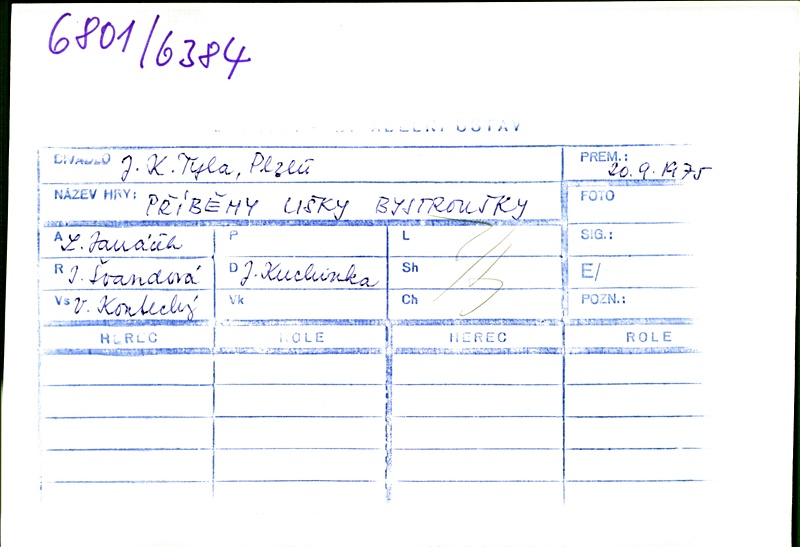 6801/6384
DIVADLO J. K. Tyla, Plzeň PREM.: 20.9.1975
NÁZEV HRY: PŘÍBĚHY LIŠKY BYSTROUŠKY FOTO
A L. Janáček P L SIG.:
R I. Švandová D J. Kuchinka Sh E/
Vs V. Konečný Vk Ch POZN.:
HEREC ROLE HEREC ROLE